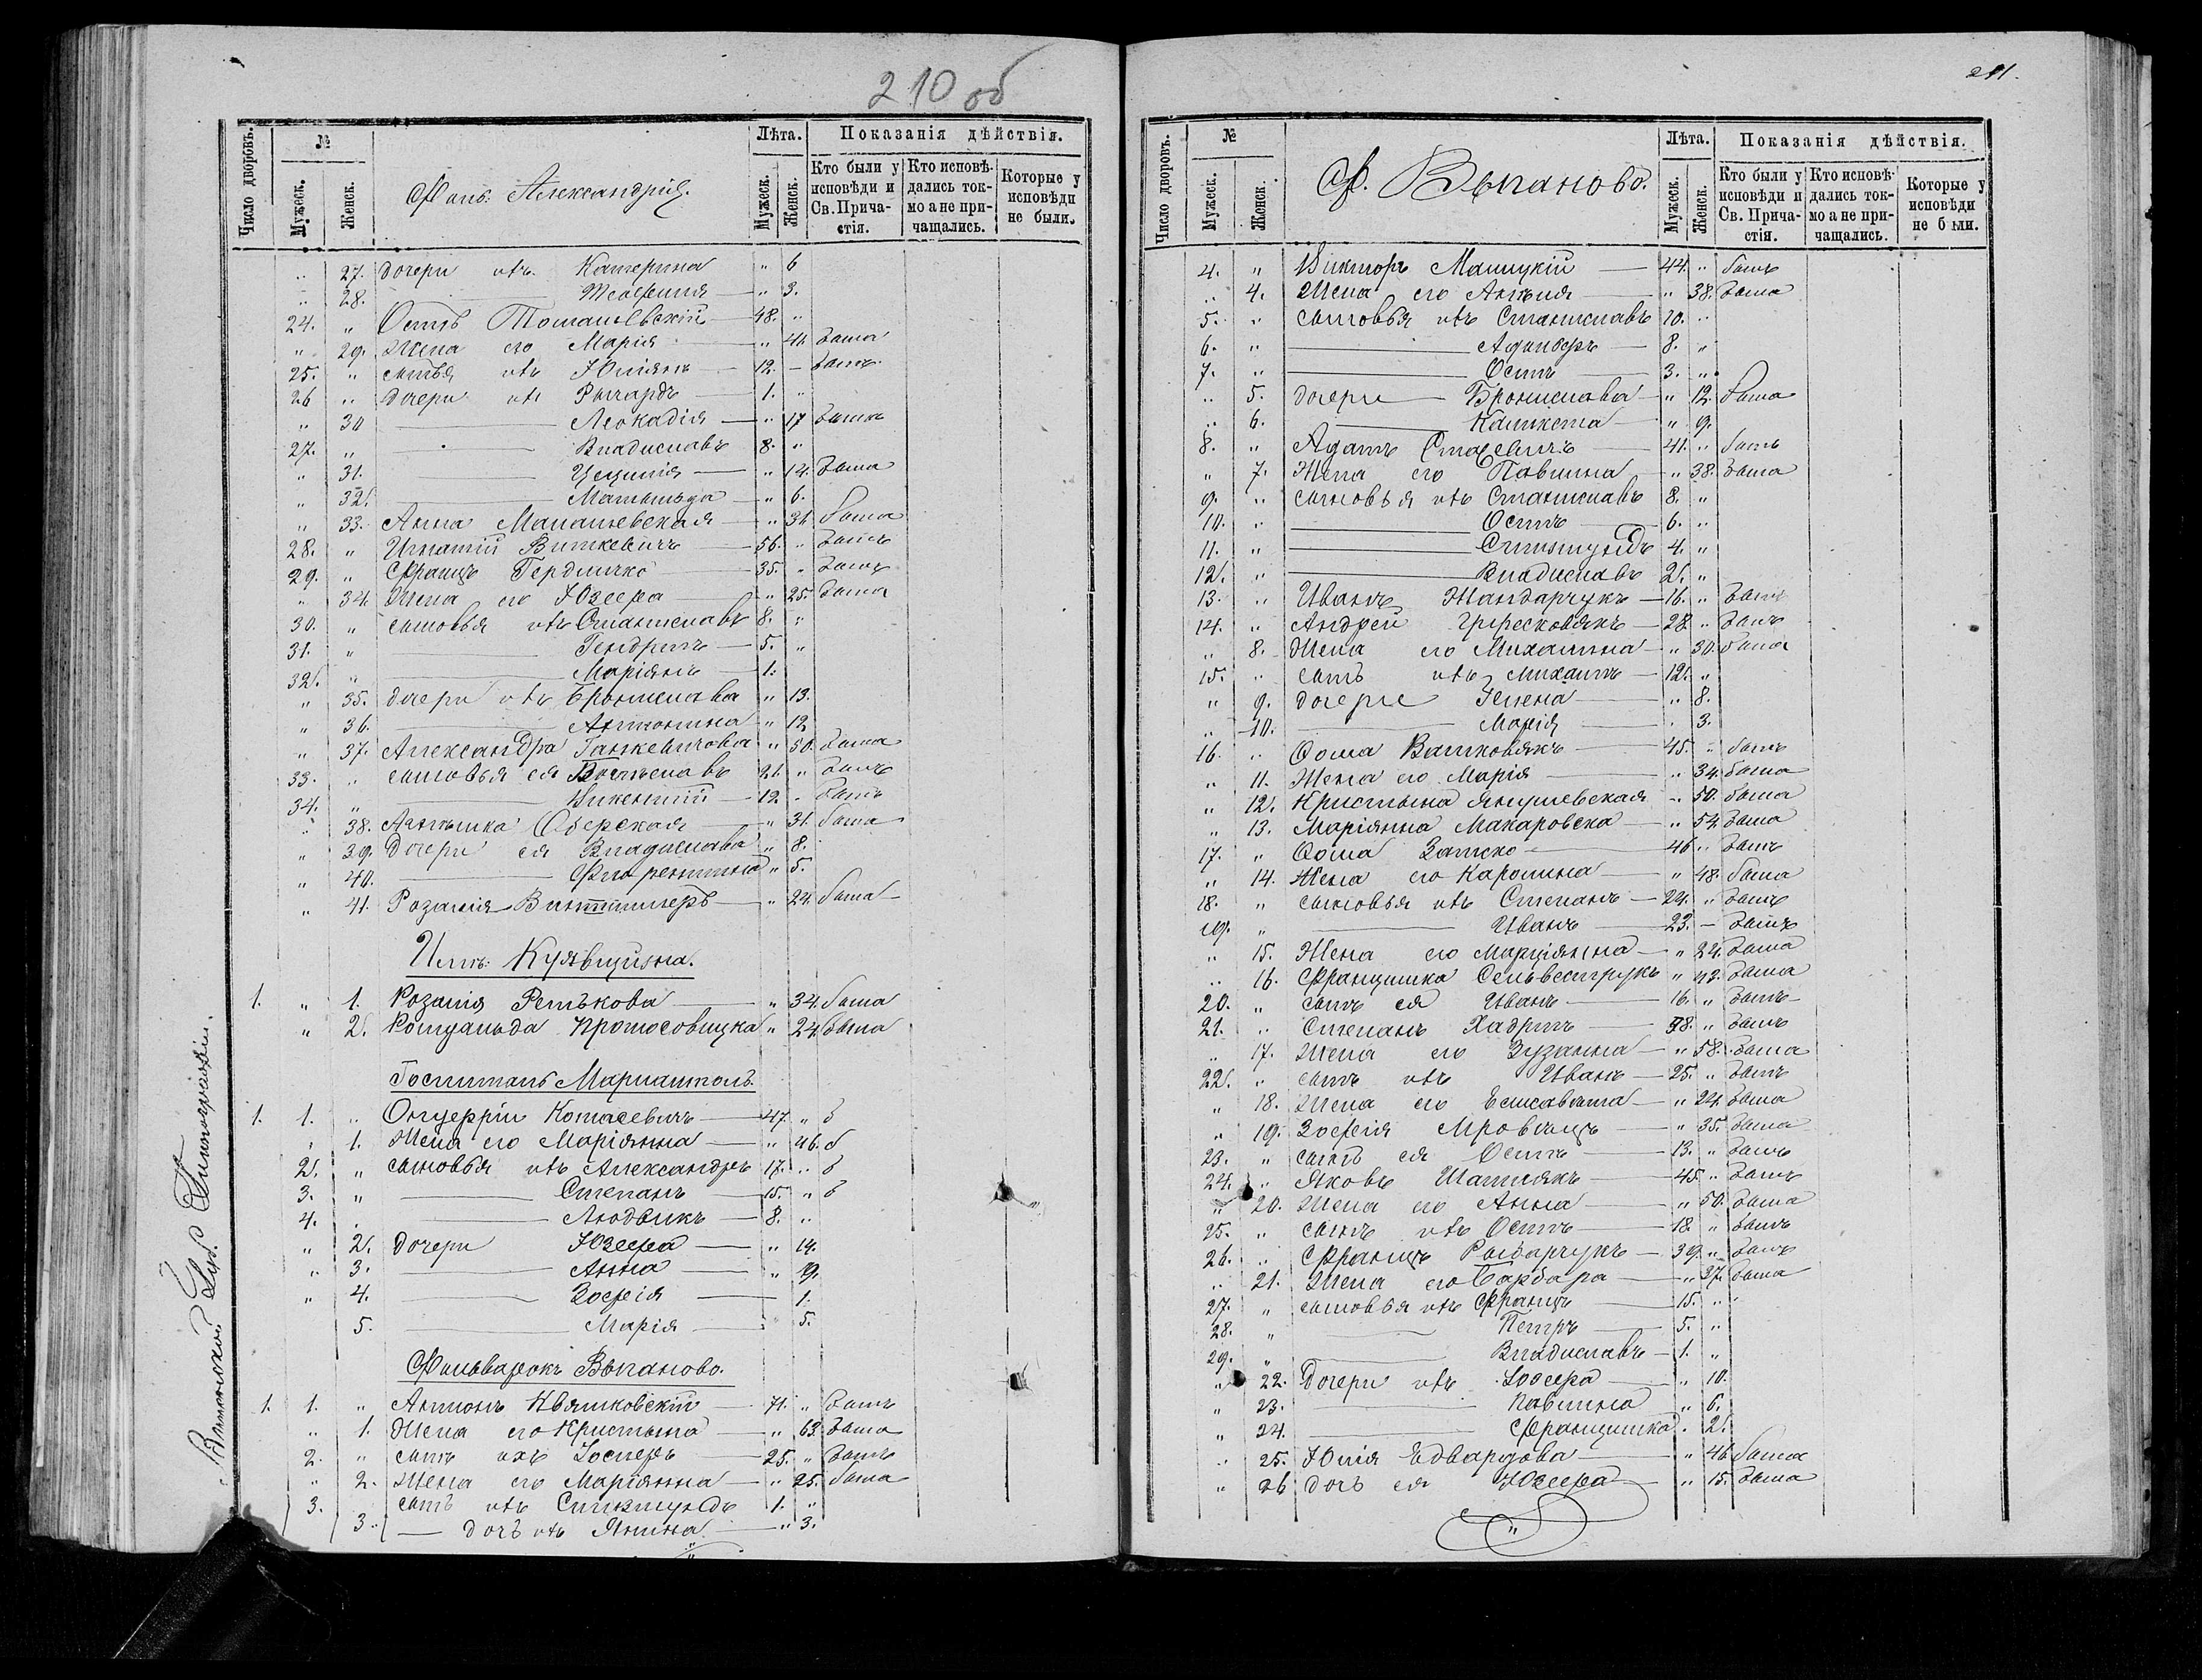 210 об
Число дворовъ.
№
Мужеск.
Женск.
Фоль. Александрія.
Лѣта.
Мужеск.
Женск.
Показанія дѣйствія.
Кто были у исповѣди и Св. Причастія.
Кто исповѣдались токмо а не причащались.
Которые у исповѣди не были.
„ 27. дочери ихъ Катерина „ 6
„ 28. Теофилія „ 3.
24. „ Осипъ Томашевскій 48. „
„ 29. Жена его Марія „ 41 была
25. „ сыновья ихъ Юліянъ 12. – былъ
26 „ дочери ихъ Рычардъ 1. „
„ 30 Леокадія „ 17 была
27. „ Владиславъ 8. „
„ 31. Цецилія „ 14. была
„ 32. Матильда „ 6.
„ 33. Анна Малашевская „ 31. была
28. „ Игнатій Виткевичъ 56. „ былъ
29. „ Францъ Гердличко 35. „ былъ
„ 34. Жена его Юзефа „ 25. была
30. „ сыновья ихъ Станиславъ 8. „
31. „ Гендрикъ 5. „
32. „ Маріянъ 1.
„ 35. дочери ихъ Брониславa „ 13.
„ 36. Антонина „ 12
„ 37. Александра Ганкевичова „ 50. была
33. „ сыновья ея Болеславъ 21. „ былъ
34. „ Викентій 12 „ былъ
„ 38. Анелька Оберская „ 31. была
„ 39. дочери ея Владислава „ 8.
„ 40. Флорентина „ 5.
„ 41. Розалія „ 24. была
Имѣ. Кулявщизна.
1. „ 1. Розалія Ретькова „ 34. была
„ 2. Ромуальда Протосовицка „ 24. была
Госпиталь Маріамполь.
1. 1. „ Онуфрій Котасевичъ 47. „ б
„ 1. Жена его Маріянна „ 46. б
2. „ сыновья ихъ Александръ 17. „ б
3. „ Степанъ 15. „ б
4. Людвикъ 8. „
„ 2. дочери Юзефа „ 14.
„ 3. Анна „ 9.
„ 4. Зофія 1.
5. Марія 5.
Фольварокъ Выганово.
1. 1. „ Антонъ Квятковскій 71. „ былъ
„ 1. Жена его Кристына „ 63 была
2. „ сынъ ихъ Іосифъ 25. „ былъ
„ 2. Жена его Маріянна „ 25. была
3. сынъ ихъ Сигизмундъ 1. „
3. дочь ихъ Янина „ 3.
Виленской Губ. Типографіи.
211.
Число дворовъ.
№
Мужеск.
Женск.
Ф. Выганово.
Лѣта.
Мужеск.
Женск.
Показанія дѣйствія.
Кто были у исповѣди и Св. Причастія.
Кто исповѣдались токмо а не причащались.
Которые у исповѣди не были.
4. „ Викторъ Малицкій 44. „ былъ
„ 4. Жена его Анеля „ 38. была
5. „ сыновья ихъ Станиславъ 10. „
6. „ 8. „
7. „ Осипъ 3. „
„ 5. дочери Бронислава „ 12. была
„ 6. „ 9.
8. „ Адамъ Стасевичъ 41. „ былъ
„ 7. Жена его Павлина „ 38. была
9. „ сыновья ихъ Станиславъ 8. „
10. „ Осипъ 6. „
11. „ Сигизмундъ 4. „
12. „ Владиславъ 2. „
13. „ Иванъ Жандарчукъ 16. „ былъ
14. „ Андрей Гржесковякъ 28. „ былъ
„ 8. Жена его Михалина „ 30. была
15. „ сынъ ихъ Михаилъ 12. „
„ 9. дочери Гелена „ 8.
„ 10. Марія „ 3.
16. „ Ѳома Валковякъ 45. „ былъ
„ 11. Жена его Марія „ 34. была
„ 12. Кристына Янушевская „ 50. была
„ 13. Маріянна Макаровска „ 54. была
17. „ Ѳома Залеско 46 „ былъ
„ 14. Жена его Каролина „ 48. была
18. „ сыновья ихъ Степанъ 24. „ былъ
19. „ Иванъ 23. – былъ
„ 15. Жена его Марціянна „ 24. была
„ 16. Францишка Сельвеструкъ „ 42. была
20. „ сынъ ея Иванъ 16. „ былъ
21. „ Степанъ Хадрыкъ 38. „ былъ
„ 17. Жена его Зузанна „ 58. была
22. „ сынъ ихъ Иванъ 25. „ былъ
„ 18. Жена его Елисавета „ 24. была
„ 19. Зофія Мровецъ „ 35. была
23. „ сынъ ея Осипъ 13. „ былъ
24. „ Яковъ Шатнякъ 45. „ былъ
„ 20. Жена его Анна „ 50. была
25. „ сынъ ихъ Осипъ 18. „ былъ
26. „ Францъ Рыбарчукъ 39. „ былъ
„ 21. Жена его Барбара „ 37. была
27. „ сыновья ихъ Францъ 15. „
28. „ Петръ 5. „
29. „ Владиславъ 1. „
„ 22. Дочери ихъ Іозефа „ 10.
„ 23. Павлина „ 6.
„ 24. Францишка „ 2.
„ 25. Юлія Едвардова „ 46. была
„ 26 дочь ея Юзефа „ 15. была